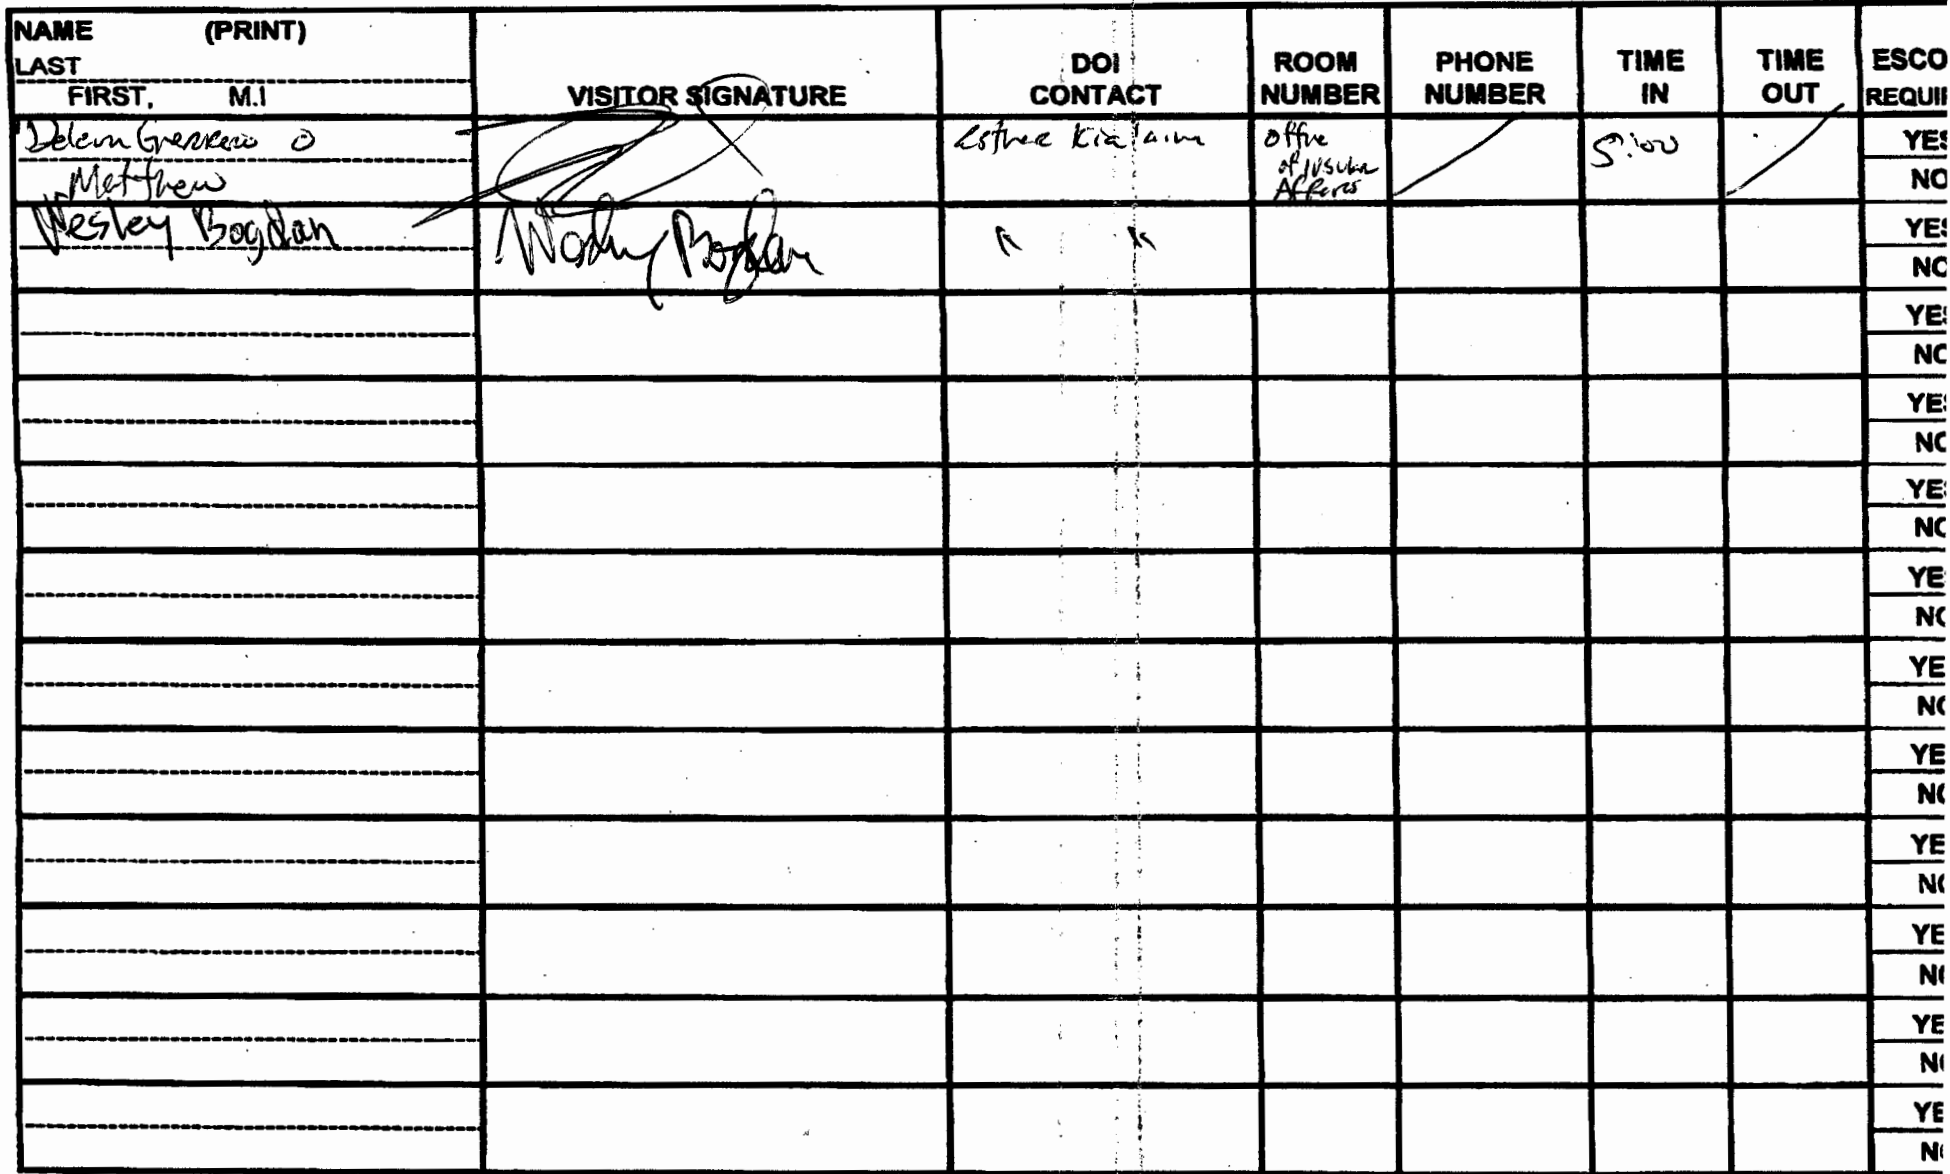 NAME (PRINT)
LAST
FIRST, M.I
VISITOR SIGNATURE
DOI
CONTACT
ROOM
NUMBER
PHONE
NUMBER
TIME
IN
TIME
OUT
ESCO
REQUI
Guerrero O
Matthew
Esther
Office
of Insular
Affairs
5:00
YES
NO
Wesley Bogdan
Bogdan
" "
YES
NO
YES
NO
YES
NO
YES
NO
YE
NO
YE
NO
YE
NO
YE
NO
YE
NO
YE
NO
YE
NO